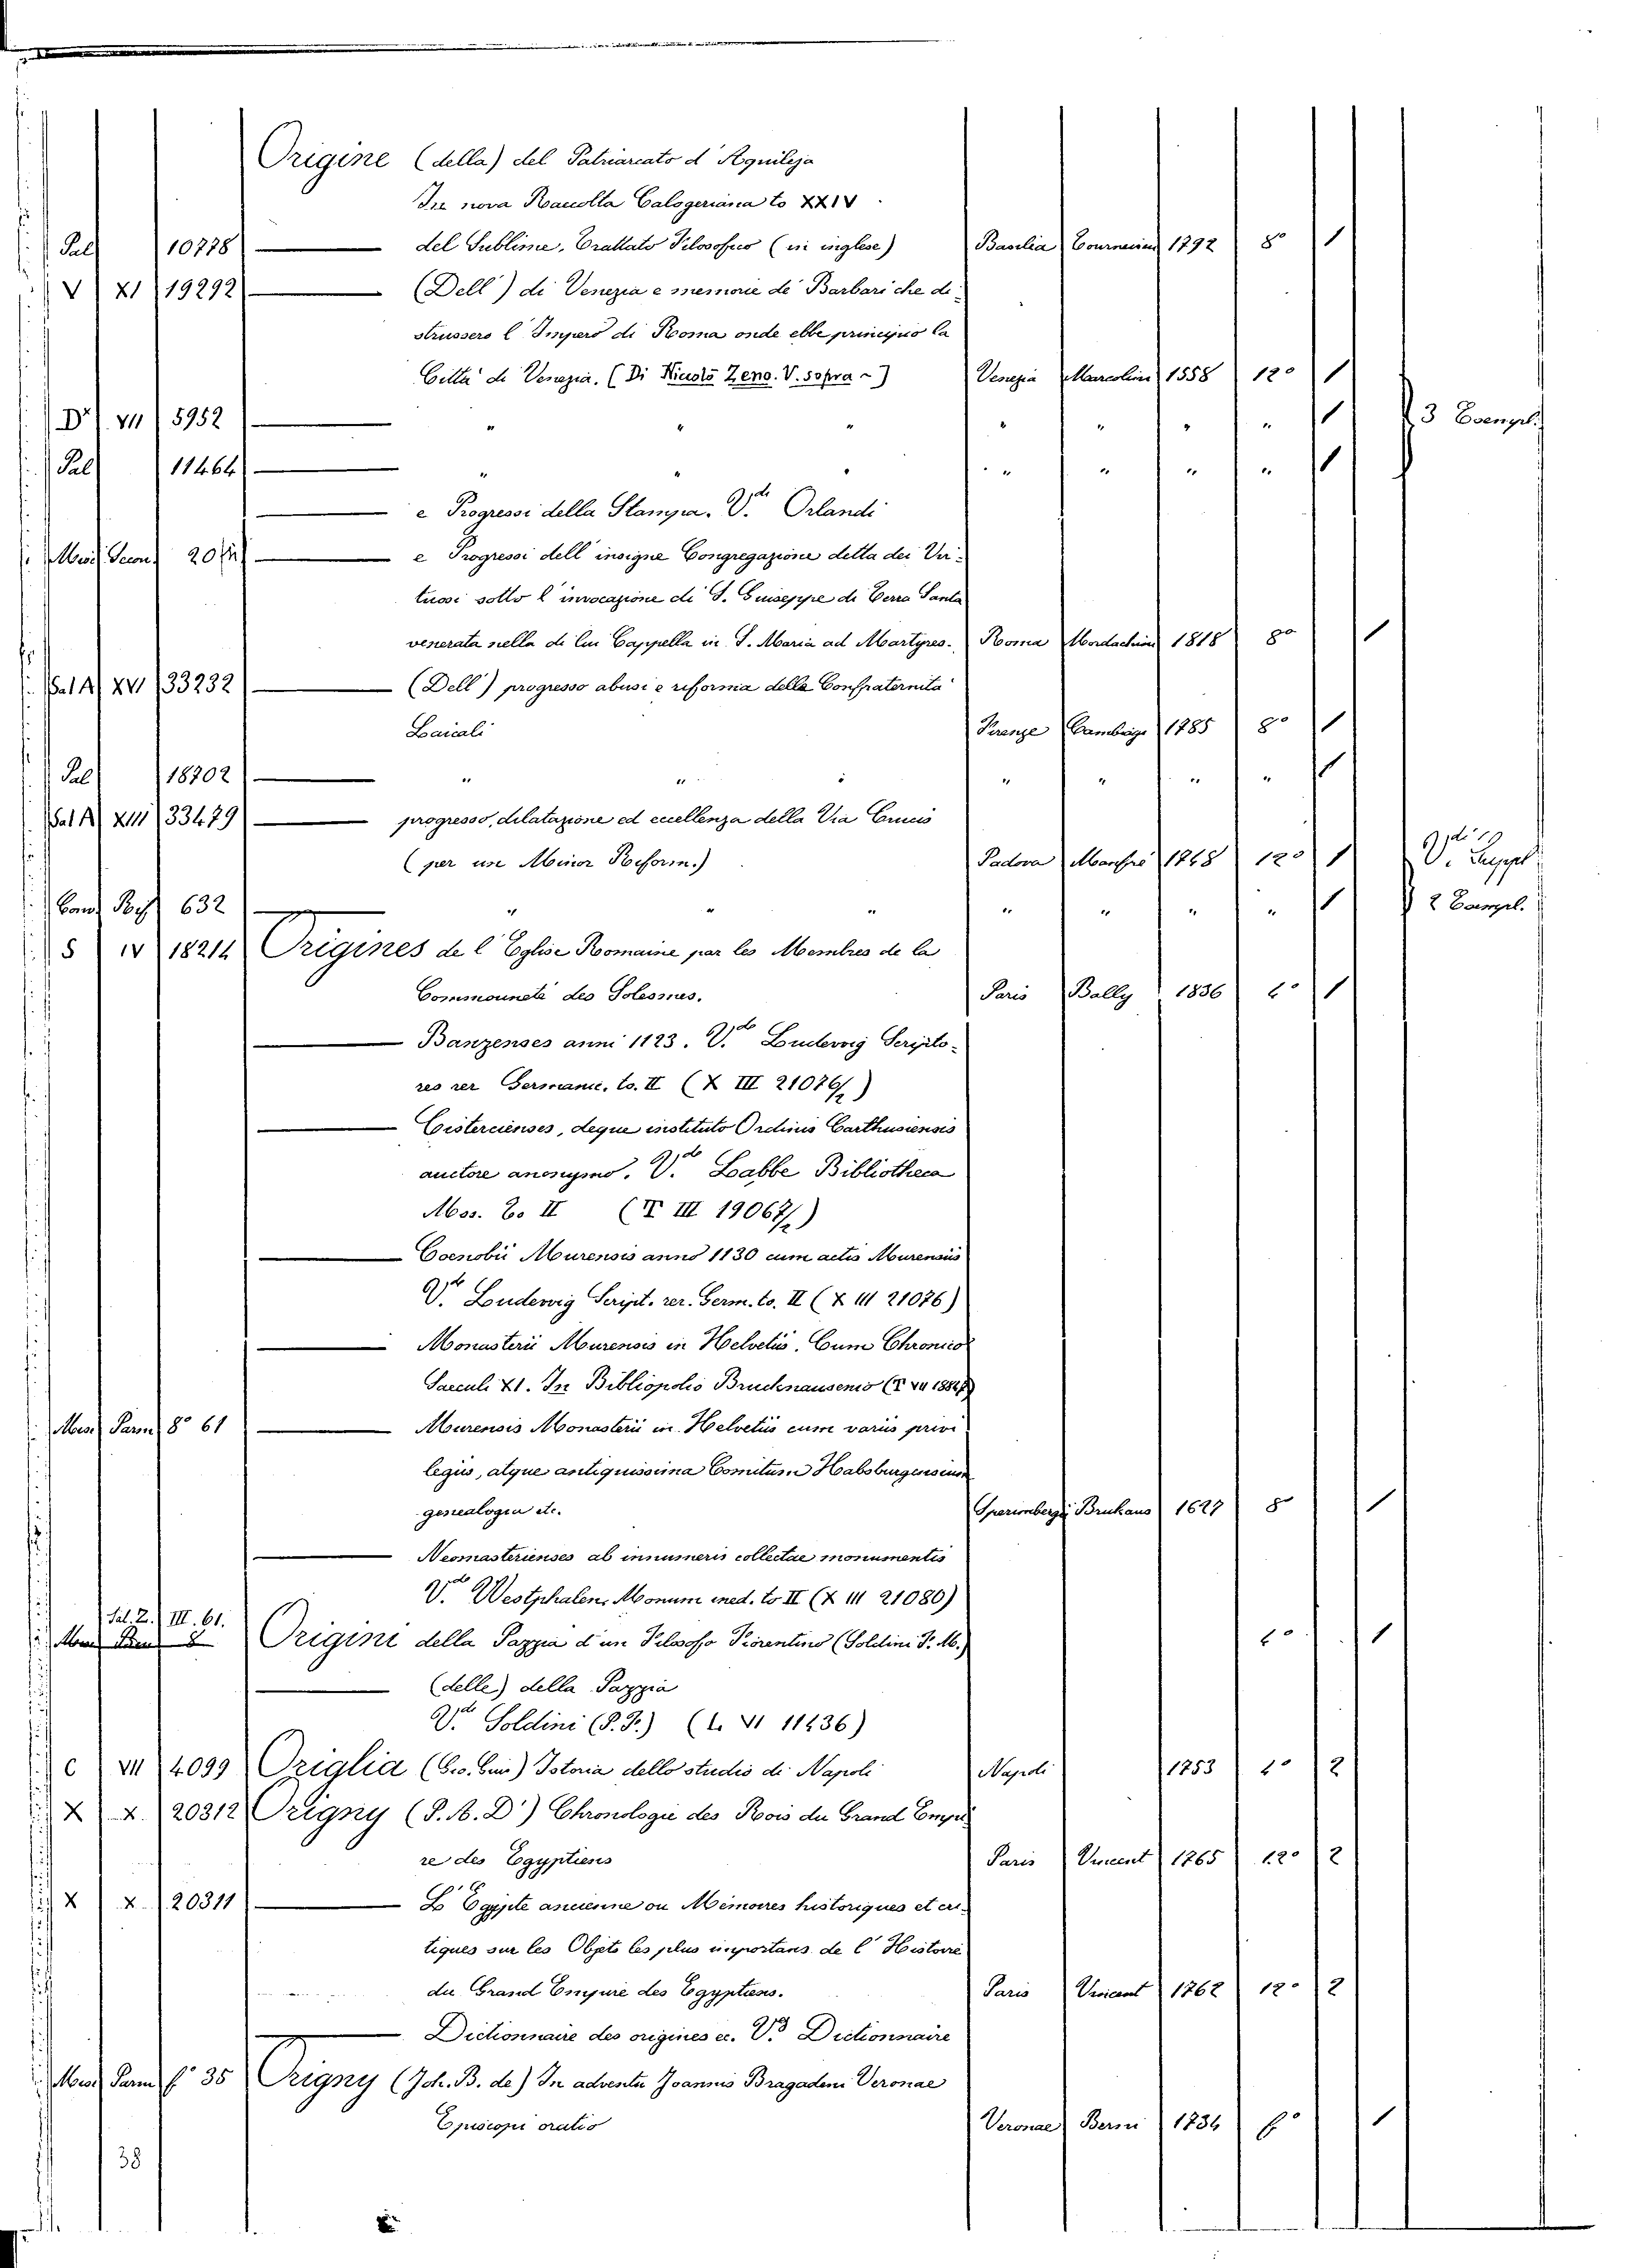 Origine (della) del Patriarcato d'Aquileja
In nova Raccolta Calogeriana to XXIV
Pal 10778 del Sublime, Trattato Filosofico (in inglese) Basilia Tourneisen 1792 8° 1
V XI 19292 (Dell') di Venezia e memorie de' Barbari che di-
strussero l'Impero di Roma onde ebbe principio la
Città di Venezia. (Di Niccolò Zeno. V. sopra ~) Venezia Marcolini 1558 12° 1
Dr VII 5952 " " " " " " " 1 3 Esempl.
Pal 11464 " " " " " " " 1
e Progressi della Stampa. Vde Orlandi
Misc. Teon 20 e Progressi dell'insigne Congregazione detta dei Vir-
tuosi sotto l'invocazione di S. Giuseppe di Terra Santa
venerata nella di lui Cappella in S. Maria ad Martyres. Roma Mordachini 1818 8° 1
Pal A XVI 33232 (Dell') progresso abusi e riforma delle Confraternita
Laicali Firenze Cambiagi 1785 8° 1
Pal 18702 " " " " " " " 1
Pal A XIII 33479 progresso, dilatazione ed eccellenza della Via Crucis
(per un Minor Reform.) Padova Manfrè 1768 12° 1 Vdi Suppl
632 " " " " " " " 1 2 Esempl.
S IV 18214 Origines de l'Eglise Romaine par les Membres de la
Commounetè des Solesmes. Paris Bally 1836 4° 1
Banzenses anni 1123. Vde Ludewig Scripto-
res rer Germanic. to. II (X III 21076/2)
Cistercienses, deque instituto Ordinis Carthusiensis
auctore anonymo. Vde Labbe Bibliotheca
Mss. To II (T III 19067/2)
Coenobii Murensis anno 1130 cum actis Murensiis
Vde Ludewig Script. rer. Germ. to. II (X III 21076)
Monasterii Murensis in Helvetiis. Cum Chronico
Saeculi XI. In Bibliopolio Bruchnausenio
Misc Parm 8° 61 Murensis Monasterii in Helvetiis cum variis privi
legiis, atque antiquissima Comitum Habsburgensium
genealogia etc. Sperimbergi Brukaus 1627 8° 1
Neomasterienses ab innumeris collectae monumentis
Vde Westphalen, Monum ined. to II (X III 21080)
Sal. Z. III. 61.
Origini della Pazzia d'un Filosofo Fiorentino (Soldini F. M.) 4° 1
(delle) della Pazzia
Vde Soldini (P. F.) (L VI 11436)
C VII 4099 Origlia (Gio. Giu) Istoria dello studio di Napoli Napoli 1753 4° 2
X X. 20312 Origny (P. A. D') Chronologie des Rois du Grand Empi
re des Egyptiens Paris Vincent 1765 12° 2
X X. 20311 L'Egypte ancienne ou Mémoires historiques et cri-
tiques sur les Objets les plus importans de l'Histoire
du Grand Empire des Egyptiens. Paris Vincent 1762 12° 2
Dictionnaire des origines ec. Vde Dictionnaire
Misc Parm f° 35 Origny (Joh. B. de) In adventu Joannis Bragadeni Veronae
Episcopi oratio Veronae Berni 1734 f° 1
38